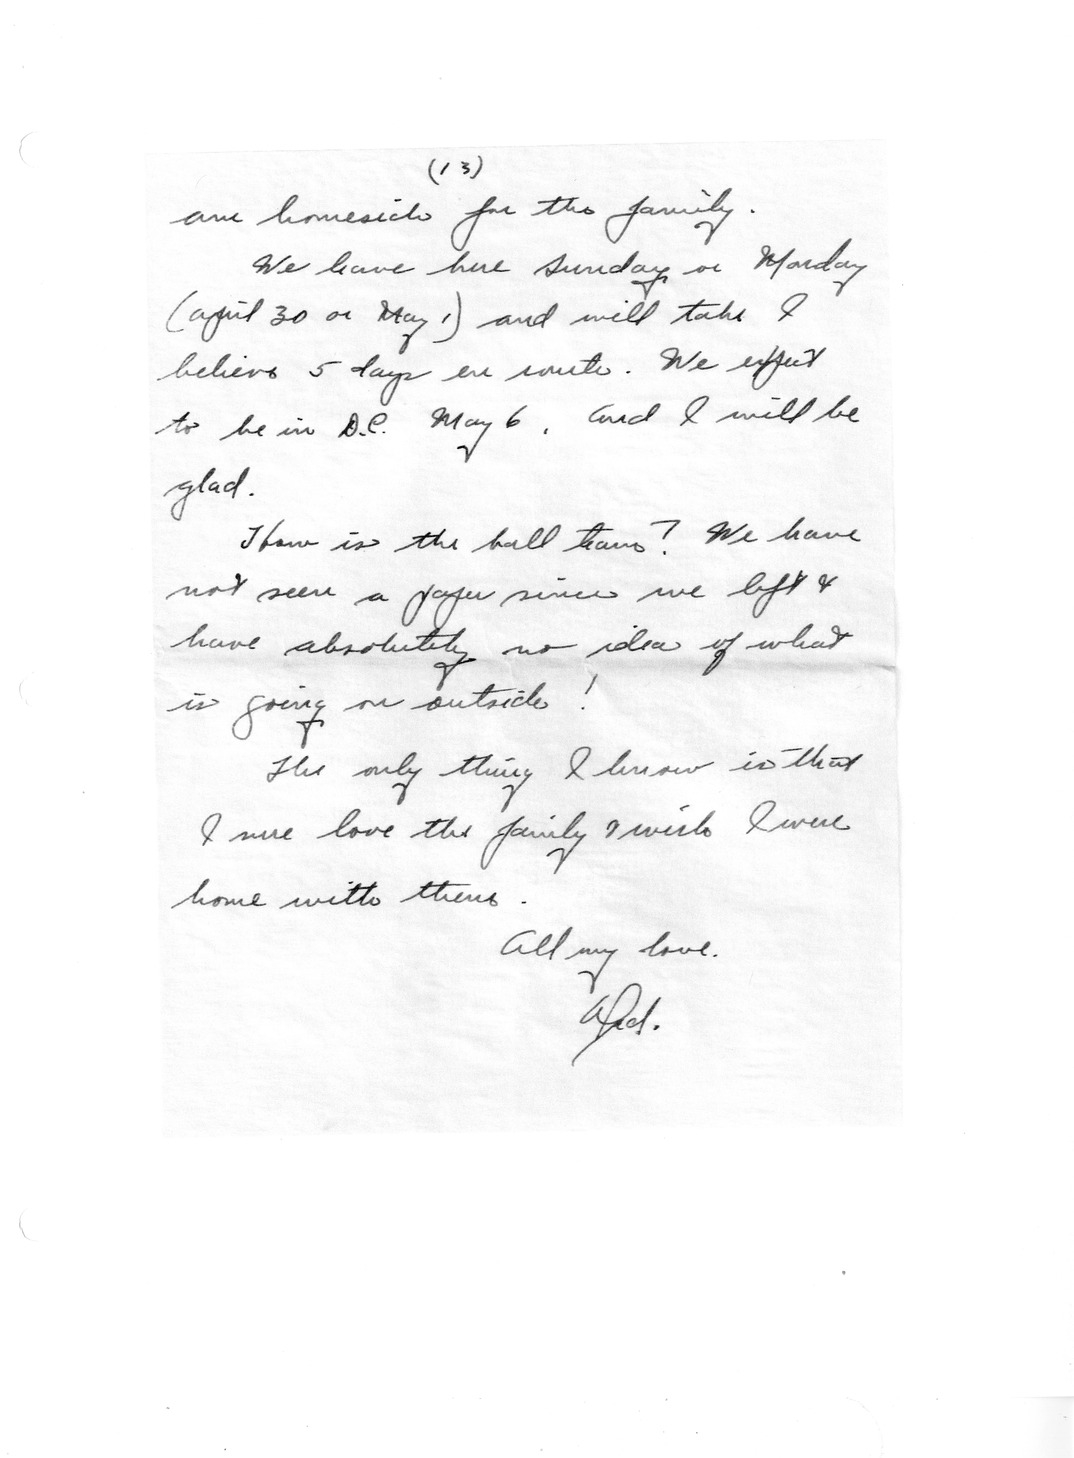 (13)
am homesick for the family.
We leave here Sunday or Monday
(April 30 or May 1) and will take I
believe 5 days en route. We expect
to be in D.C. May 6. And I will be
glad.
How is the ball team? We have
not seen a paper since we left &
have absolutely no idea of what
is going on outside!
The only thing I know is that
I sure love the family & wish I were
home with them.
All my love.